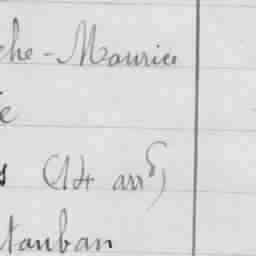 che-Maurice
e
s (14 arrt)
tauban